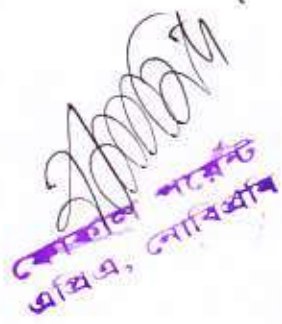 ফোকাল পয়েন্ট
এপিএ, নোবিপ্রবি